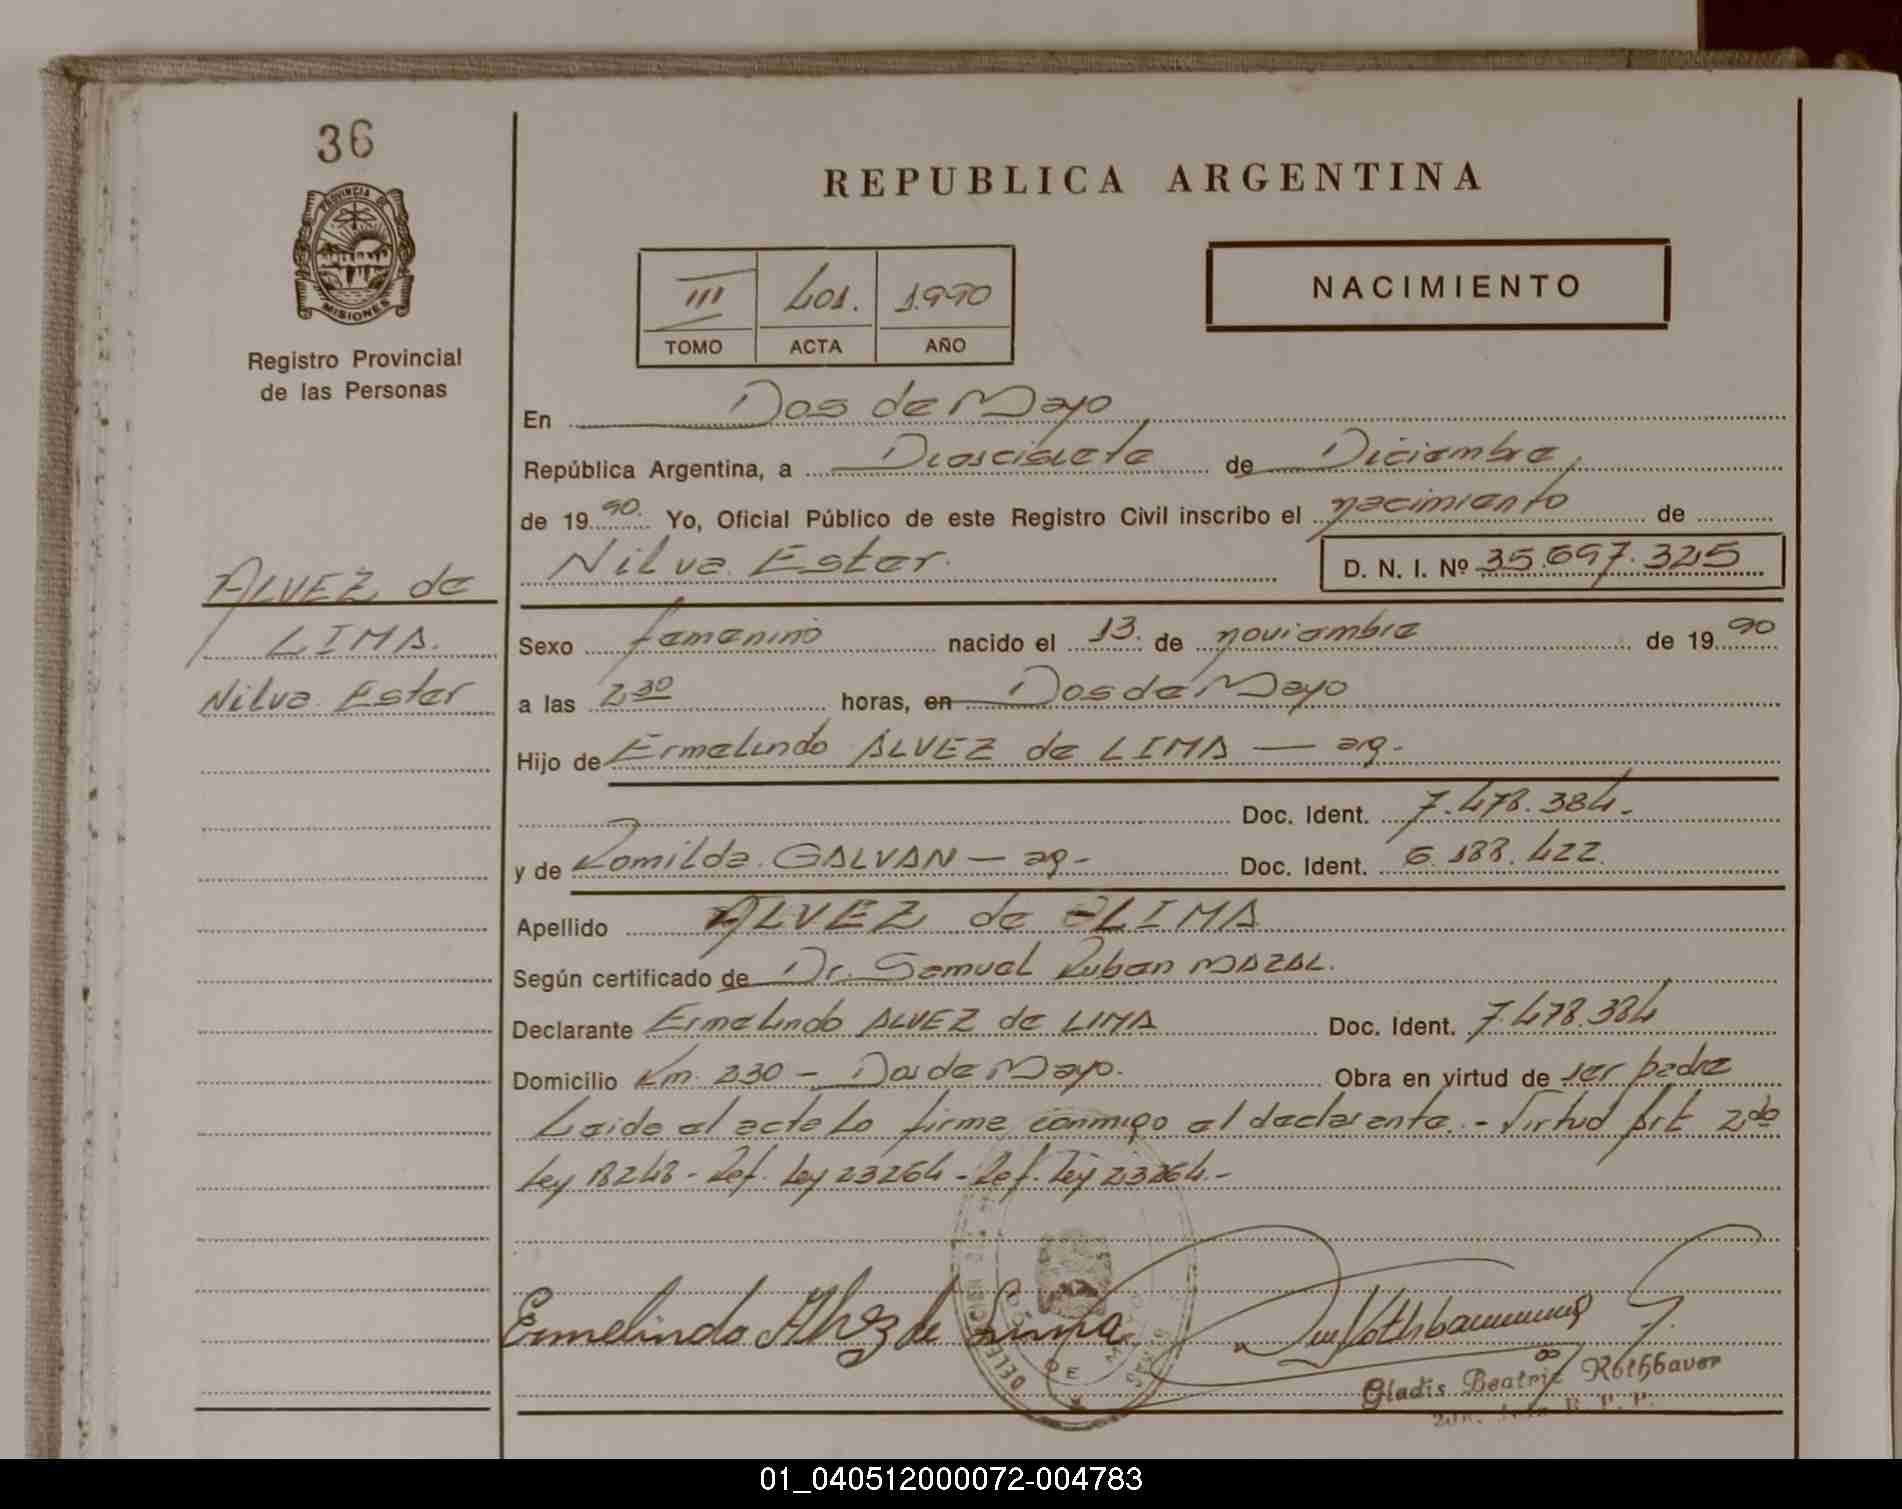 36
PROVINCIA DE
MISIONES
Registro Provincial
de las Personas
REPUBLICA ARGENTINA
III 401. 1.990
TOMO ACTA AÑO
NACIMIENTO
En Dos de Mayo
República Argentina, a Diescisiete de Diciembre
de 19 90. Yo, Oficial Público de este Registro Civil inscribo el nacimiento de
Nilva Ester. D. N. I. Nº 35.697.325
ALVEZ de
LIMA.
Nilva Ester
Sexo femenino nacido el 13. de noviembre de 19 90
a las 2,30 horas, en Dos de Mayo
Hijo de Ermelindo ALVEZ de LIMA — arg.
Doc. Ident. 7.478.384.-
y de Romilda GALVAN — ag-
Doc. Ident. 6.188.422.
Apellido ALVEZ de LIMA
Según certificado de Dr. Samuel Ruben MAZAL.
Declarante Ermelindo ALVEZ de LIMA Doc. Ident. 7.478.384
Domicilio Km. 230 - Dos de Mayo. Obra en virtud de ser padre
Leida el acta La firma conmigo el declarante.- Virtud Art 2do
Ley 18248 - Ref. Ley 23264 - Ref. Ley 23264.-
Ermelindo Alvez de Lima
Gladis Beatriz Rothbauer
DE
01_040512000072-004783